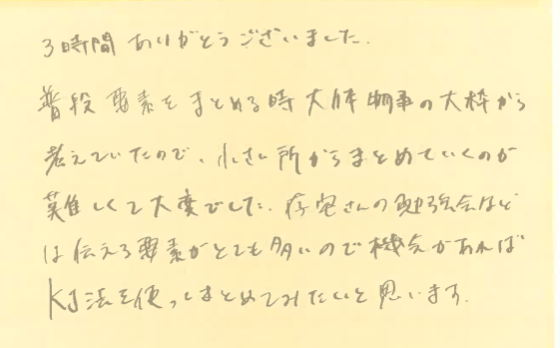 3時間 ありがとうございました.
普段 要素をまとめる時 大体 物事の大枠から
考えていたので、小さい所からまとめていくのが
難しくて大変でした. さんの勉強会など
は伝える要素がとても多いので機会があれば
KJ法を使ってまとめてみたいと思います.